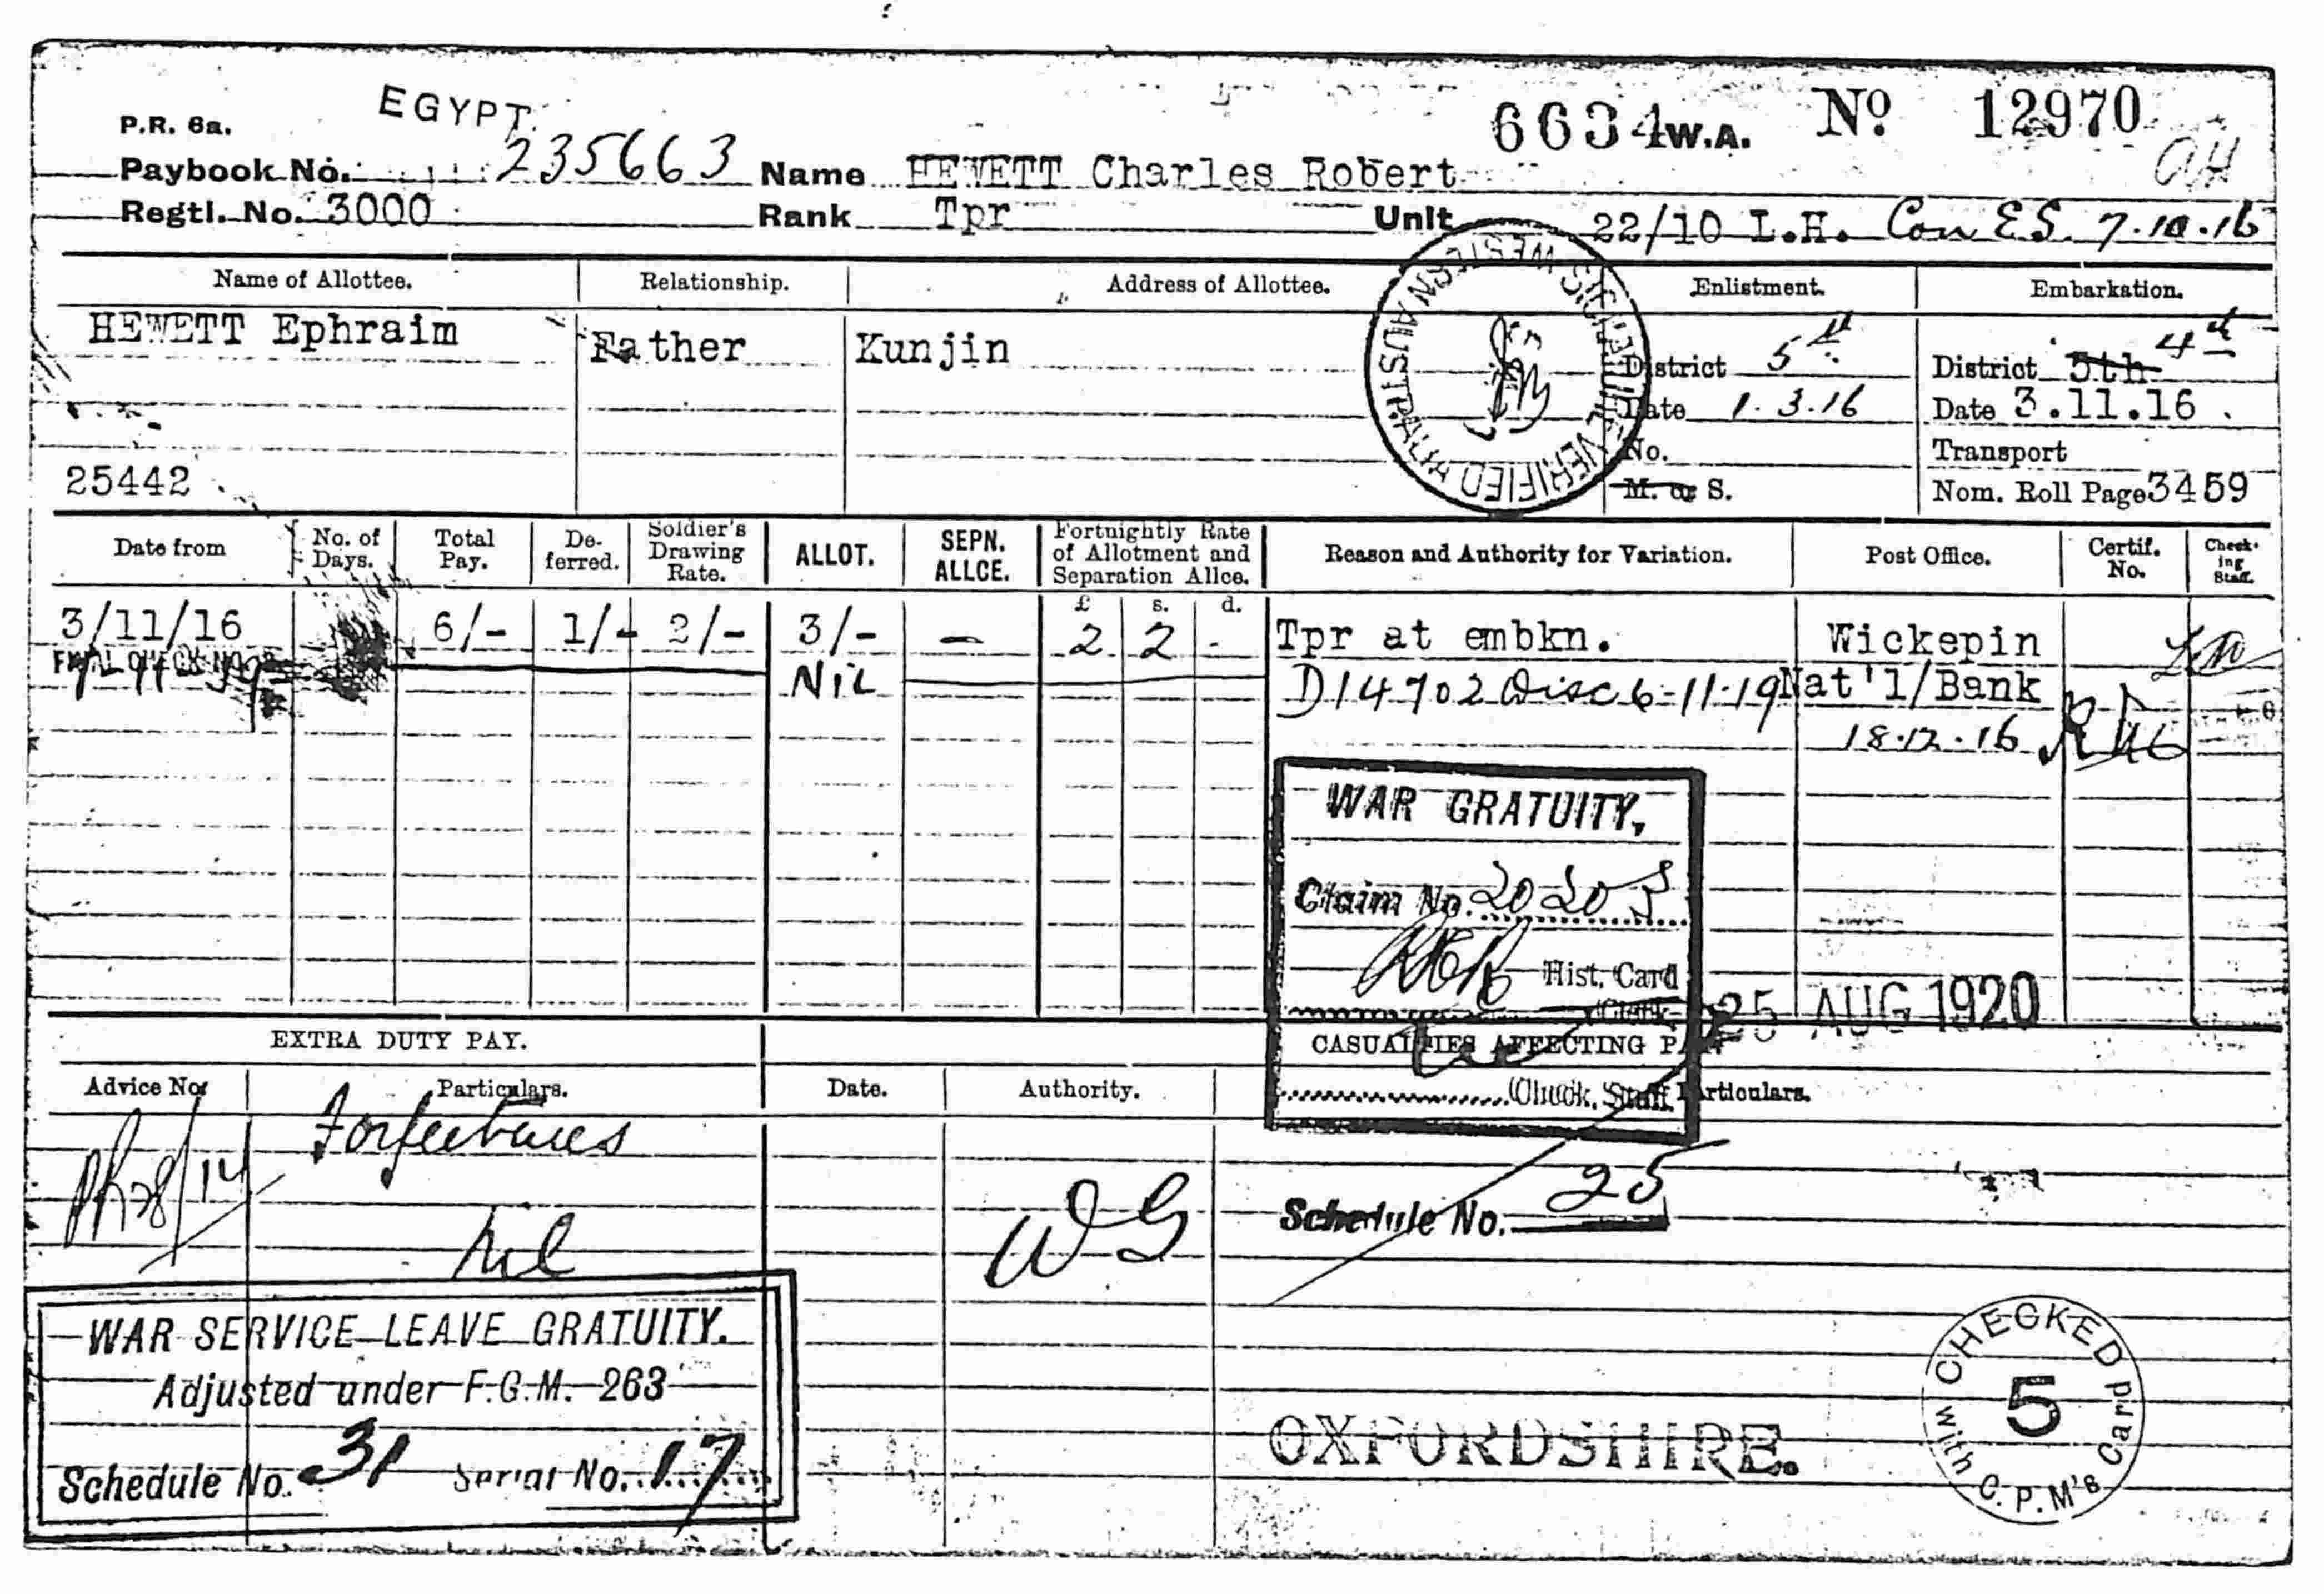 EGYPT.
P.R. 6a.
6634 W.A. Nº 12970
Paybook No. 235663 Name HEWETT Charles Robert
Regtl. No. 3000 Rank Tpr Unit 22/10 L.H. Con E.S. 7.10.16
Name of Allottee. Relationship. Address of Allottee. Enlistment. Embarkation.
HEWETT Ephraim Father Kunjin
District 5th District 5th 4th
Date 1.3.16 Date 3.11.16.
No. Transport
25442 M. or S. Nom. Roll Page 3459
SIGNATURE VERIFIED WESTERN AUSTRALIA
Date from No. of Days. Total Pay. De-ferred. Soldier's Drawing Rate. ALLOT. SEPN. ALLCE. Fortnightly Rate of Allotment and Separation Allce. Reason and Authority for Variation. Post Office. Certif. No. Check-ing Staff.
£ s. d.
3/11/16 6/- 1/- 2/- 3/- — 2 2 - Tpr at embkn. Wickepin
Nil D14702 Disc 6-11-19 Nat'l/Bank
18.12.16
WAR GRATUITY,
Claim No. 20205
Hist. Card
(Clerk.
25 AUG 1920
EXTRA DUTY PAY. CASUALTIES AFFECTING PAY.
Advice No. Particulars. Date. Authority. Check. Staff. Particulars.
Forfeitures
Nil
WG
Schedule No. 25
WAR SERVICE LEAVE GRATUITY.
Adjusted under F.G.M. 263
Schedule No. 31 Serial No. 17
OXFORDSHIRE.
CHECKED
5
With C.P.M's Card